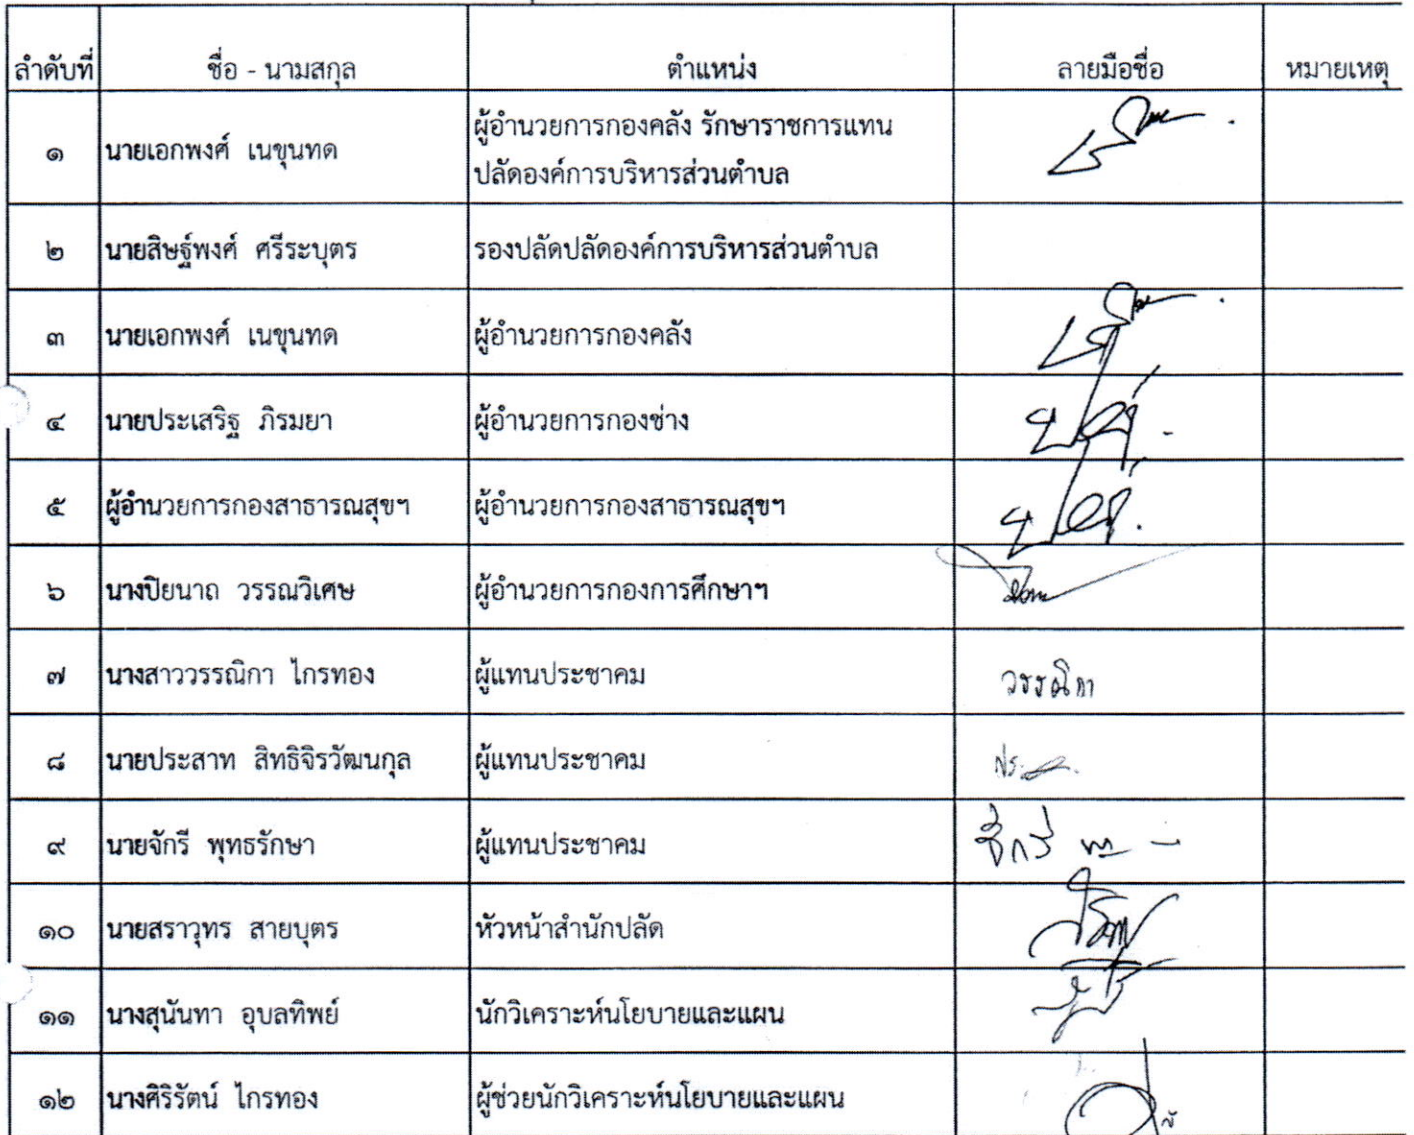 ลำดับที่ ชื่อ - นามสกุล ตำแหน่ง ลายมือชื่อ หมายเหตุ
๑ นายเอกพงศ์ เนขุนทด ผู้อำนวยการกองคลัง รักษาราชการแทน
ปลัดองค์การบริหารส่วนตำบล
๒ นายสิษฐ์พงศ์ ศรีระบุตร รองปลัดปลัดองค์การบริหารส่วนตำบล
๓ นายเอกพงศ์ เนขุนทด ผู้อำนวยการกองคลัง
๔ นายประเสริฐ ภิรมยา ผู้อำนวยการกองช่าง
๕ ผู้อำนวยการกองสาธารณสุขฯ ผู้อำนวยการกองสาธารณสุขฯ
๖ นางปิยนาถ วรรณวิเศษ ผู้อำนวยการกองการศึกษาฯ
๗ นางสาววรรณิกา ไกรทอง ผู้แทนประชาคม วรรณิกา
๘ นายประสาท สิทธิจิรวัฒนกุล ผู้แทนประชาคม
๙ นายจักรี พุทธรักษา ผู้แทนประชาคม จักรี
๑๐ นายสราวุทร สายบุตร หัวหน้าสำนักปลัด
๑๑ นางสุนันทา อุบลทิพย์ นักวิเคราะห์นโยบายและแผน
๑๒ นางศิริรัตน์ ไกรทอง ผู้ช่วยนักวิเคราะห์นโยบายและแผน